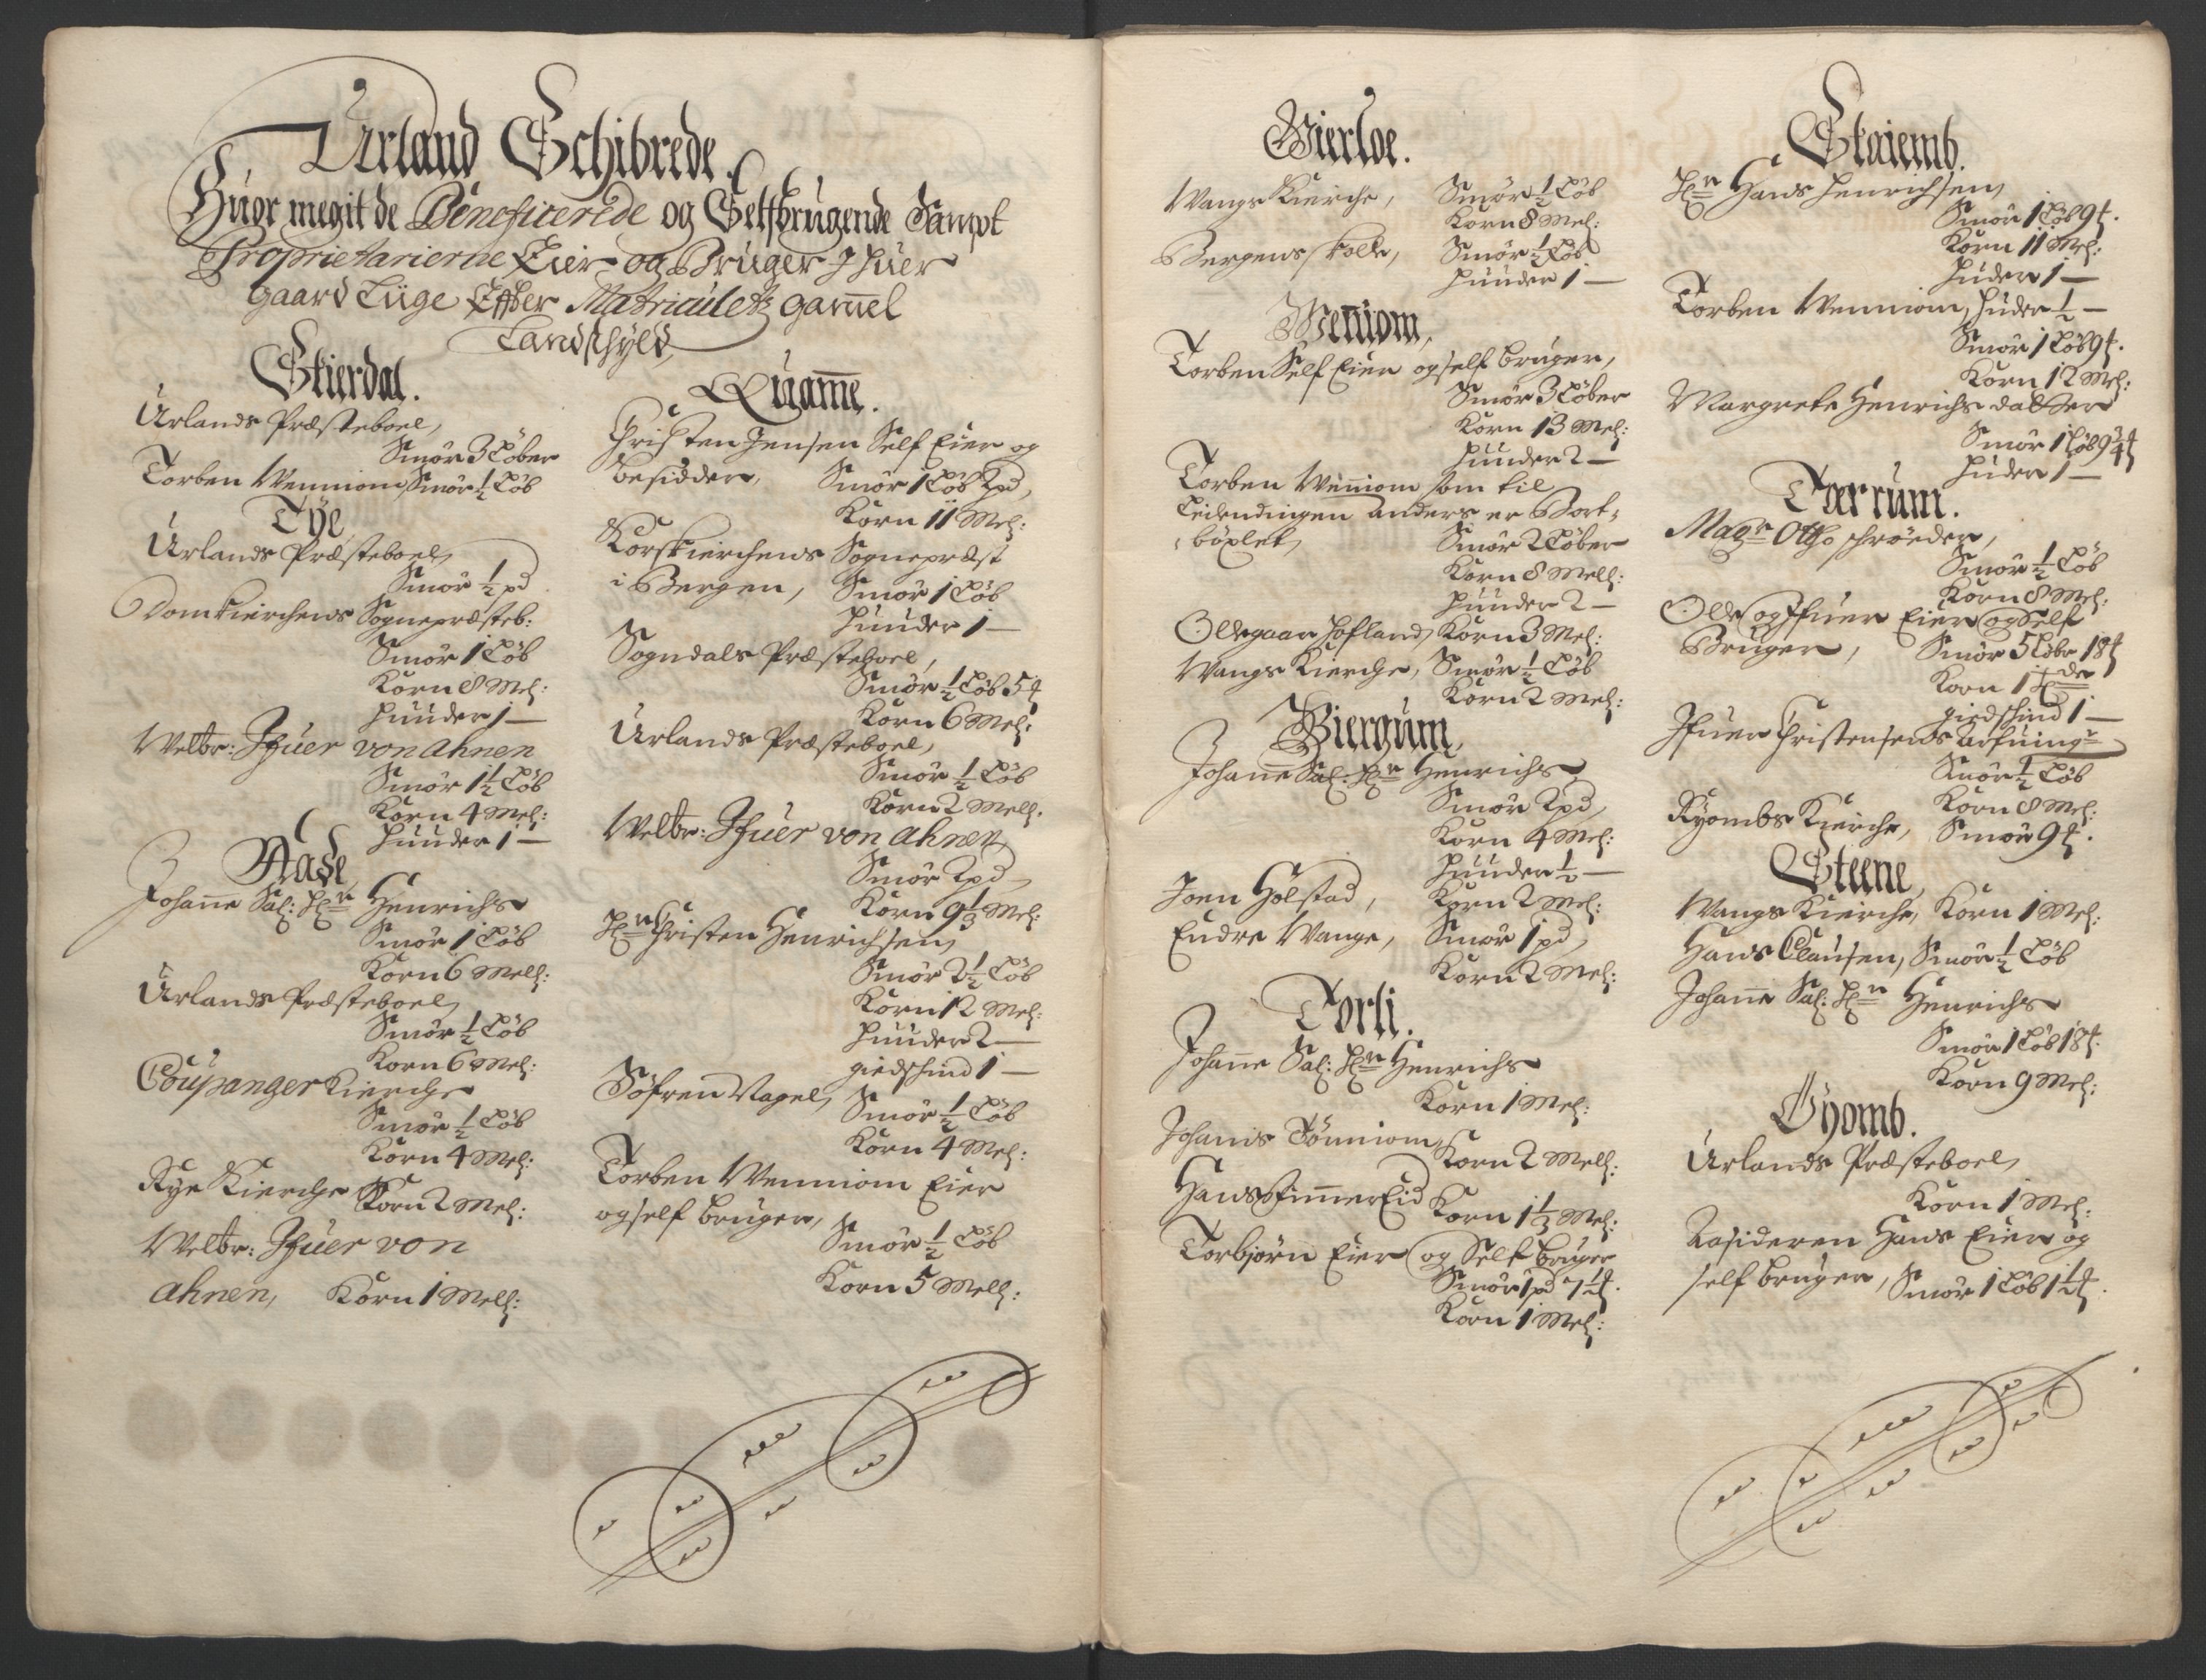 Urland Schibrede.
Huor megit de Beneficerede og Selfbrugende Sampt
Proprietarierne Eier og Bruger J huer
gaard Liige Effter Matriculets gammel
Landschyld,
Skierdal.
Urlands Præsteboel,
Smør 3 Løber
Torben Wenniom, Smør ½ Løb
Tye
Urlands Præsteboel,
Smør ½ pd
Domkierchens Sognepræsteb:
Smør 1 Løb
Korn 8 Mel:
Huuder 1 —
Welbr: Jfuer von Ahnen
Smør 1½ Løb
Korn 4 Mel:
Huuder 1 —
Aase
Johanne Sal: Hr Henrichs
Smør 1 Løb
Korn 6 Mell:
Urlands Præsteboel,
Smør ½ Løb
Korn 6 Mel:
Coupanger Kierche
Smør ½ Løb
Korn 4 Mel:
Rye Kierche, Korn 2 Mel:
Welbr: Jfuer von
Ahnen, Korn 1 Mell:
Quamme.
Christen Jensen Self Eier og
besidder, Smør 1 Løb 2 pd,
Korn 11 Mel:
Korskierchens Sognepræst
i Bergen, Smør 1 Løb
Huuder 1 —
Sogndals Præsteboel,
Smør ½ Løb 5 ℔
Korn 6 Mel:
Urlands Præsteboel,
Smør ½ Løb
Korn 2 Mell:
Welbr: Jfuer von Ahnen
Smør 2 pd,
Korn 9⅓ Mel:
Hr Christen Henrichsen,
Smør 2½ Løb
Korn 12 Mel:
Huuder 2 —
giedschind 1 —
Søfren Nagel, Smør ½ Løb
Korn 4 Mel:
Torben Wenniom Eier
og self bruger,
Smør ½ Løb
Korn 5 Mell:
Wierloe.
Wangs Kierche, Smør ½ Løb
Korn 8 Mel:
Bergens skolle, Smør ½ Løb
Huuder 1 —
Wenniom,
Torben Self Eier og self bruger,
Smør 3 Løber
Korn 13 Mel:
Huuder 2 —
Torben Wenniom som til
Leilendingen Anders er Bort-
bøxlet, Smør 2 Løber
Korn 8 Mell:
Huuder 2 —
Ollegaar Hofland, Korn 3 Mel:
Wangs Kierche, Smør ½ Løb
Korn 2 Mel:
Biergum,
Johanne Sal: Hr Henrichs
Smør 2 pd,
Korn 4 Mel:
Huuder ½ —
Joen Holstad, Korn 2 Mel:
Endre Wange, Smør 1 pd,
Korn 2 Mel:
Torli.
Johanne Sal: Hr Henrichs
Korn 1 Mel:
Johanis Tønniom,
Korn 2 Mell:
Hans Simmer Eid Korn 1⅓ Mel:
Torbjørn Eier og Self bruger
Smør 1 pd 7½ ℔.
Korn 1 Mel:
Skaiemb.
Hr Hans Henrichsen,
Smør 1 Løb 9 ℔.
Korn 11 Mel:
Huder 1 —
Torben Wenniom, Huder ½ —
Smør 1 Løb 9 ℔.
Korn 12 Mel:
Margrete Henrichs datter
Smør 1 Løb 9¾ ℔
Huder 1 —
Tærrum.
Magr Otho schrøeder,
Smør ½ Løb
Korn 8 Mel:
Olle og Jfuer Eier og Self
Bruger, Smør 5 Løbr 18 ℔
Korn 1 Tde
giedschind 1 —
Jfuer Christensens Arfuingr
Smør ½ Løb
Korn 8 Mel:
Ryombs Kierche, Smør 9 ℔.
Steene,
Wangs Kierche, Korn 1 Mel:
Hans Clausen, Smør ½ Løb
Johanne Sal: Hr Henrichs
Smør 1 Løb 18 ℔.
Korn 9 Mel:
Gyomb.
Urlands Præsteboel,
Korn 1 Mel:
Residerer Hans Eier og
self bruger, Smør 1 Løb 1½ ℔.